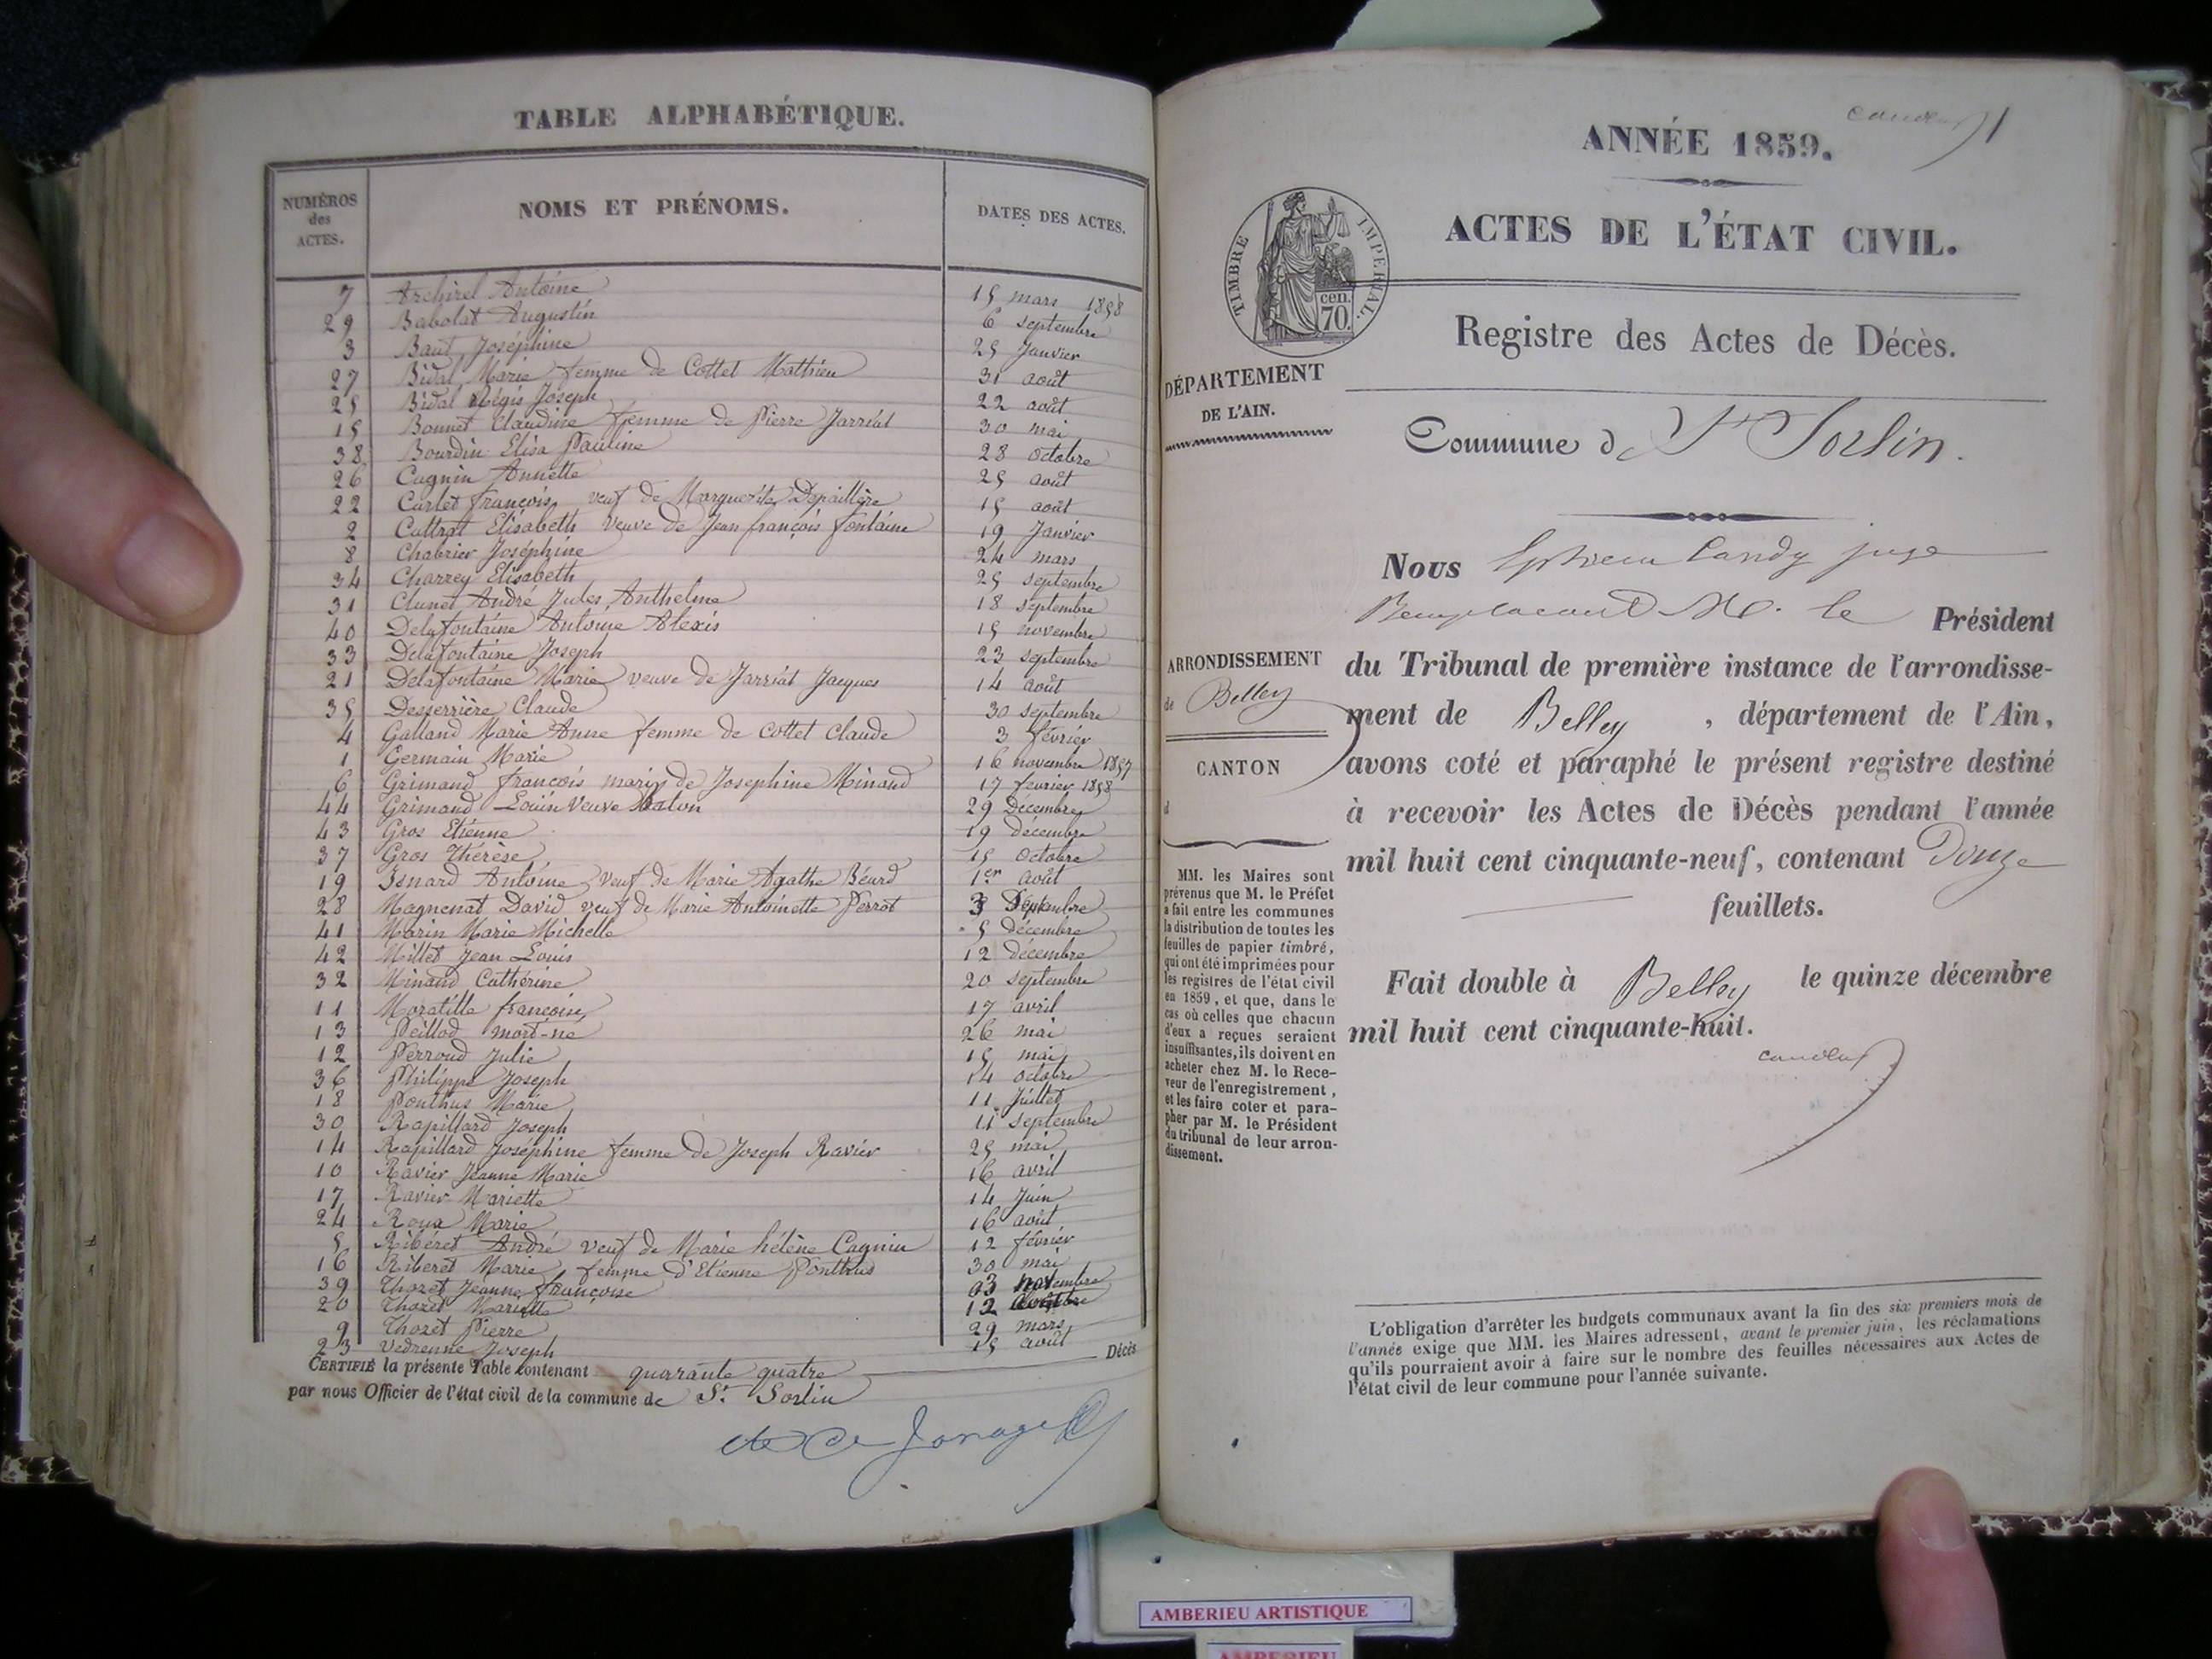 TABLE ALPHABÉTIQUE.
NUMÉROS des ACTES.
NOMS ET PRÉNOMS.
DATES DES ACTES.
7 Archirel Antoine 15 mars 1858
29 Babolat Augustin 6 septembre
3 Baut Joséphine 25 Janvier
27 Bidal Marie femme de Cottet Mathieu 31 août
25 Bidal Régis Joseph 22 août
15 Bonnet Claudine femme de Pierre Jarriat 30 mai
38 Bourdin Elisa Pauline 28 octobre
26 Cagnin Annette 25 août
22 Carlet françois, veuf de Marguerite Depaillère 15 août
2 Cattrat Elisabeth veuve de Jean françois fontaine 19 Janvier
8 Chabrier Joséphine 24 mars
34 Charrey Elisabeth 25 septembre
31 Clunet André Jules Anthelme 18 septembre
40 Delafontaine Antoine Alexis 15 novembre
33 Delafontaine Joseph 23 septembre
21 Delafontaine Marie veuve de Jarriat Jacques 14 août
35 Desserrière Claude 30 septembre
4 Galland Marie Anne femme de Cottet Claude 3 février
1 Germain Marie 16 novembre 1857
6 Grimand françois mari de Josephine Minaud 17 fevrier 1858
44 Grimand Louise Veuve 29 Décembre
43 Gros Etienne 19 décembre
37 Gros Thérèse 15 Octobre
19 Isnard Antoine, veuf de Marie Agathe Béard 1er août
28 Magnenat David veuf de Marie Antoinette Perrot 3 Septembre
41 Marin Marie Michelle 5 décembre
42 Millet Jean Louis 12 décembre
32 Minaud Cathérine 20 septembre
11 Moratille françoise 17 avril
13 Peillod mort-né 26 mai
12 Perroud Julie 15 mai
36 Philippe Joseph 14 octobre
18 Ponthus Marie 11 Juillet
30 Rapillard Joseph 11 septembre
14 Rapillard Joséphine femme de Joseph Ravier 25 mai
10 Ravier Jeanne Marie 16 avril
17 Ravier Mariette 14 Juin
24 Roux Marie 16 août
5 Ribéret André veuf de Marie hélène Cagnin 12 février
16 Riberet Marie femme d'Etienne Ponthus 30 mai
39 Thozet Jeanne françoise 03 novembre
20 Thozet Mariette 12
9 Thozet Pierre 29 mars
23 Vedrenne Joseph 15 août
CERTIFIÉ la présente Table contenant quarante quatre Décès
par nous Officier de l'état civil de la commune de St Sorlin
ANNÉE 1859.
1
ACTES DE L'ÉTAT CIVIL.
TIMBRE IMPÉRIAL.
cen. 70.
Registre des Actes de Décès.
DÉPARTEMENT
DE L'AIN.
Commune de St Sorlin.
Nous juge
M. le Président
ARRONDISSEMENT
de Belley
CANTON
d
du Tribunal de première instance de l'arrondisse-
ment de Belley, département de l'Ain,
avons coté et paraphé le présent registre destiné
à recevoir les Actes de Décès pendant l'année
mil huit cent cinquante-neuf, contenant Douze
feuillets.
MM. les Maires sont
prévenus que M. le Préfet
a fait entre les communes
la distribution de toutes les
feuilles de papier timbré,
qui ont été imprimées pour
les registres de l'état civil
en 1859, et que, dans le
cas où celles que chacun
d'eux a reçues seraient
insuffisantes, ils doivent en
acheter chez M. le Rece-
veur de l'enregistrement,
et les faire coter et para-
pher par M. le Président
du tribunal de leur arron-
dissement.
Fait double à Belley le quinze décembre
mil huit cent cinquante-huit.
L'obligation d'arrêter les budgets communaux avant la fin des six premiers mois de
l'année exige que MM. les Maires adressent, avant le premier juin, les réclamations
qu'ils pourraient avoir à faire sur le nombre des feuilles nécessaires aux Actes de
l'état civil de leur commune pour l'année suivante.
AMBERIEU ARTISTIQUE
AMBERIEU